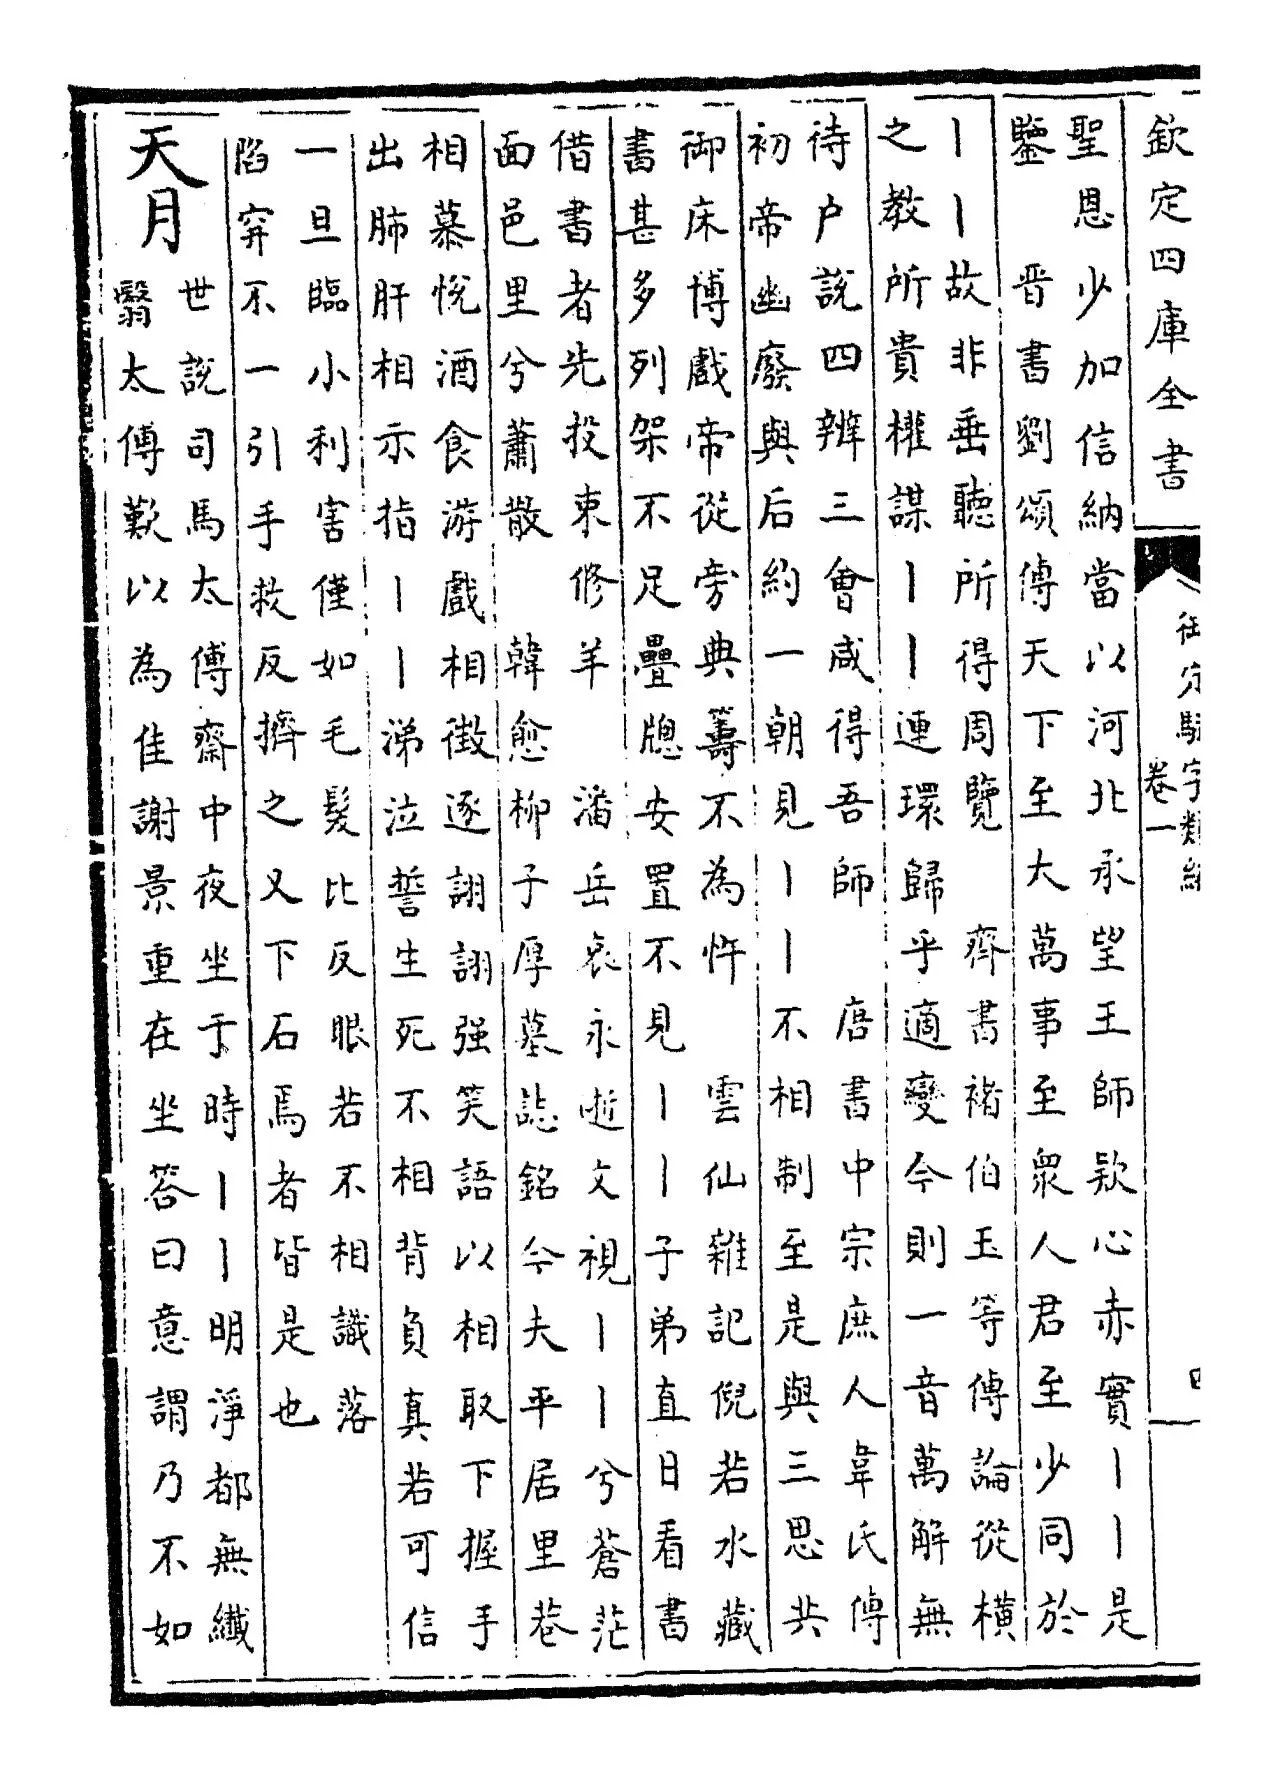 欽定四庫全書
卷一
聖恩少加信納當以河北承望王師欵心赤實丨丨是
鑒　晉書劉頌傳天下至大萬事至衆人君至少同於
丨丨故非垂聽所得周覽　齊書褚伯玉等傳論從横
之教所貴權謀丨丨連環歸乎適變今則一音萬解無
待户說四辨三會咸得吾師　唐書中宗庶人韋氏傳
初帝幽廢與后約一朝見丨丨不相制至是與三思共
御床博戲帝從旁典籌不為忤　雲仙雜記倪若水藏
書甚多列架不足疊牕安置不見丨丨子弟直日看書
借書者先投束修羊　潘岳哀永逝文視丨丨兮蒼茫
面邑里兮蕭散　韓愈柳子厚墓誌銘今夫平居里巷
相慕悅酒食游戲相徵逐詡詡强笑語以相取下握手
出肺肝相示指丨丨涕泣誓生死不相背負真若可信
一旦臨小利害僅如毛髮比反眼若不相識落
陷穽不一引手救反擠之又下石焉者皆是也
天月
世說司馬太傅齋中夜坐于時丨丨明淨都無纖
翳太傅歎以為佳謝景重在坐答曰意謂乃不如